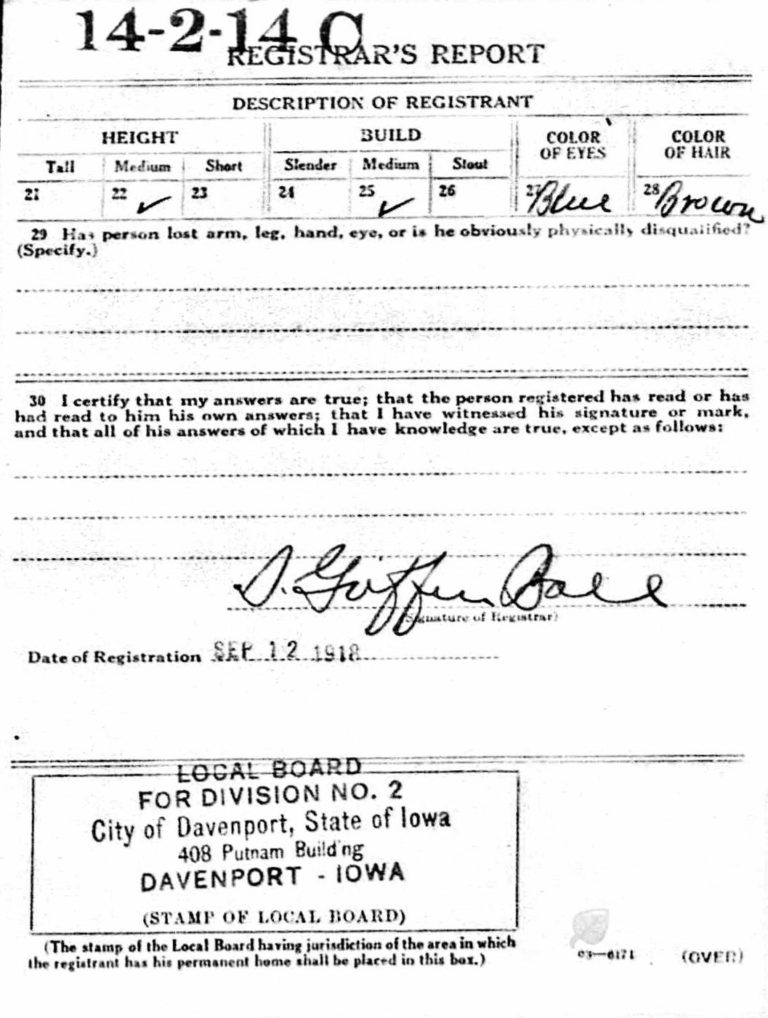 14-2-14 C
REGISTRAR'S REPORT
DESCRIPTION OF REGISTRANT
HEIGHT BUILD COLOR OF EYES COLOR OF HAIR
Tall Medium Short Slender Medium Stout
21 22 ✓ 23 24 25 ✓ 26 27 Blue 28 Brown
29 Has person lost arm, leg, hand, eye, or is he obviously physically disqualified?
(Specify.)
30 I certify that my answers are true; that the person registered has read or has
had read to him his own answers; that I have witnessed his signature or mark,
and that all of his answers of which I have knowledge are true, except as follows:
Ball
(Signature of Registrar)
Date of Registration SEP 12 1918
LOCAL BOARD
FOR DIVISION NO. 2
City of Davenport, State of Iowa
408 Putnam Building
DAVENPORT - IOWA
(STAMP OF LOCAL BOARD)
(The stamp of the Local Board having jurisdiction of the area in which
the registrant has his permanent home shall be placed in this box.)
03—6171 (OVER)